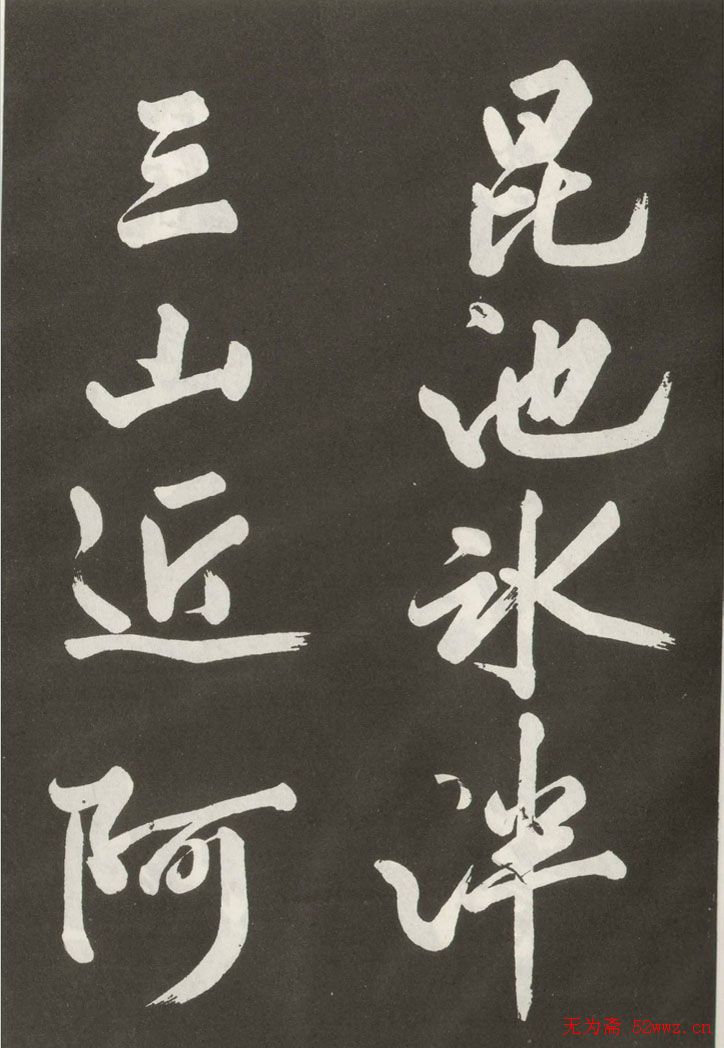 昆池氷泮
三山近阿
无为斋 52wwz.cn